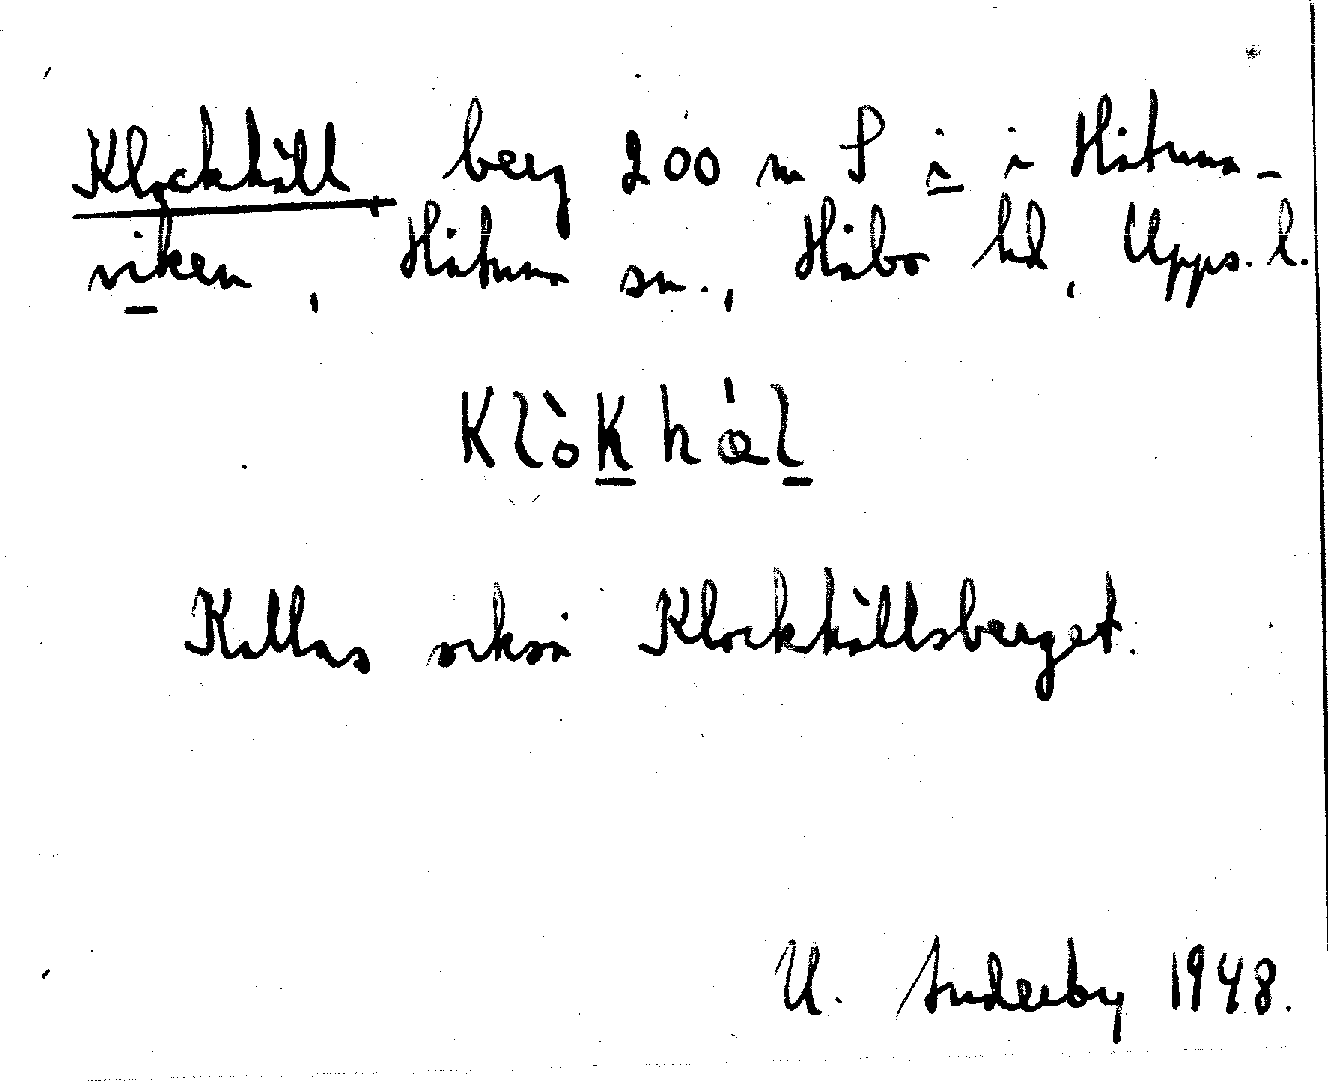 Klockhäll, berg 200 m S i i Håtuna-
viken, Håtuna sn., Håbo hd, Upps. l.
Klòkhál
Kallas också Klockhällsberget.
U. Söderby 1948.